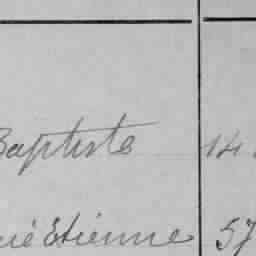 Baptiste 14
Etienne 57